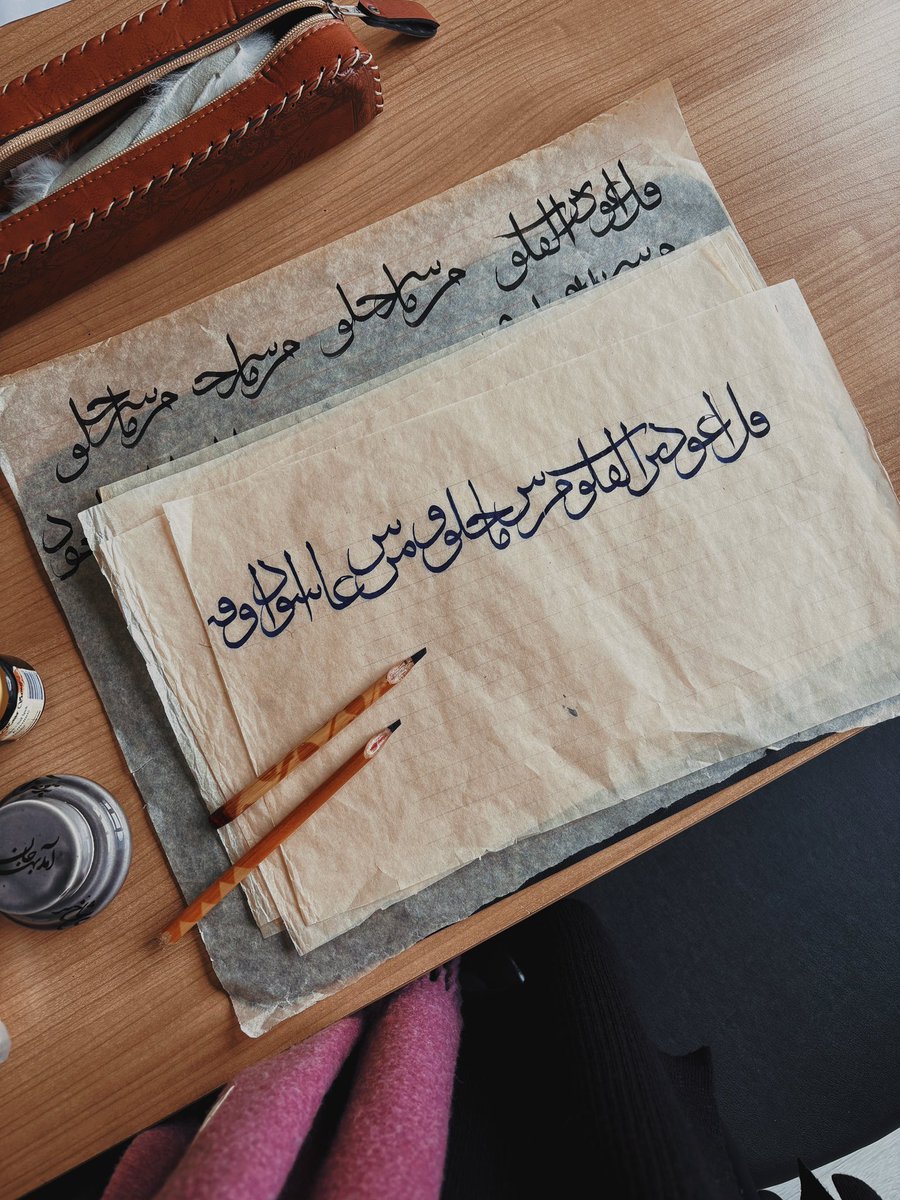 قل اعوذ برب الفلق من شر ما خلق من شر ما من شر ما خلق
قل اعوذ برب الفلق من شر ما خلق و من شر غاسق اذا وقب
آمد بهار